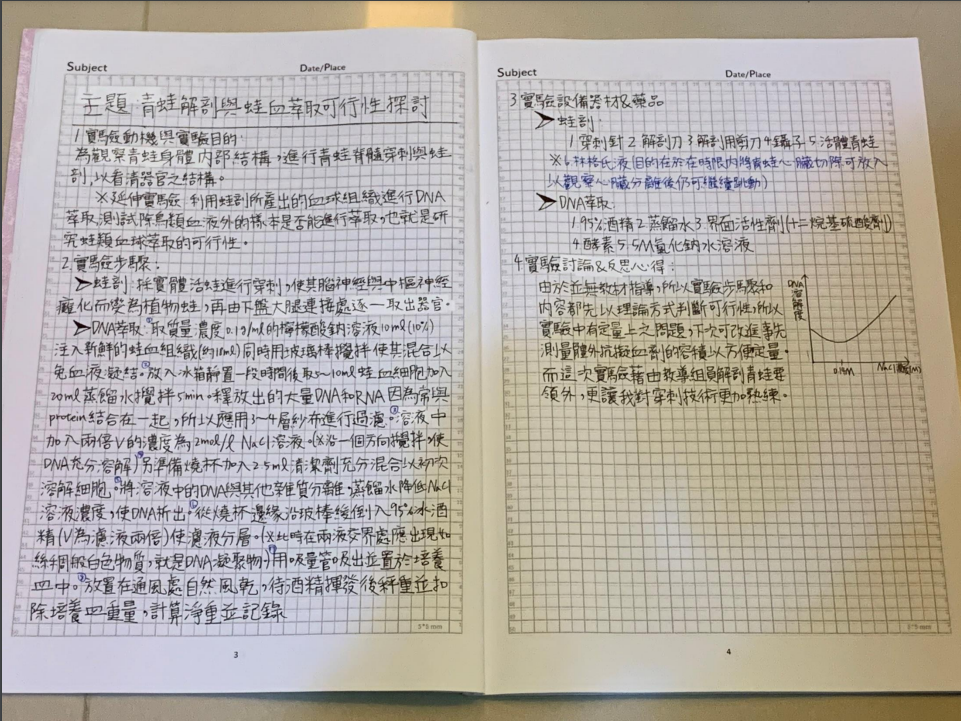 Subject
Date/Place
主題:青蛙解剖與蛙血萃取可行性探討
1.實驗動機與實驗目的:
為觀察青蛙身體內部結構,進行青蛙脊髓穿刺與蛙
剖,以看清器官之結構。
※延伸實驗:利用蛙剖所產出的血球組織進行DNA
萃取,測試除鳥類血液外的樣本是否能進行萃取,也就是研
究蛙類血球萃取的可行性。
2.實驗步驟:
➤蛙剖:採實體活蛙進行穿刺,使其腦神經與中樞神經
癱化而變為植物蛙,再由下盤大腿連接處逐一取出器官。
➤DNA萃取:①取質量濃度0.1g/ml的檸檬酸鈉溶液10ml(10%)
注入新鮮的蛙血組織(約18ml)同時用玻璃棒攪拌使其混合以
免血液凝結。②放入冰箱靜置一段時間後取5~10ml蛙血細胞加入
20ml蒸餾水攪拌5min。釋放出的大量DNA和RNA因為常與
protein結合在一起,所以應用3~4層紗布進行過濾。③溶液中
加入兩倍V的濃度為2mol/l NaCl溶液。(※沿一個方向攪拌,使
DNA充分溶解)④另準備燒杯加入25ml清潔劑充分混合以初次
溶解細胞。⑤將溶液中的DNA與其他雜質分離,蒸餾水降低NaCl
溶液濃度,使DNA析出。⑥從燒杯邊緣沿玻棒緩倒入95%冰酒
精(V為濾液兩倍)使濾液分層。(※此時在兩液交界處應出現如
絲綢般白色物質,就是DNA凝聚物)⑦用吸量管吸出並置於培養
皿中。⑧放置在通風處自然風乾,待酒精揮發後秤重並扣
除培養皿重量,計算淨重並記錄
5*5 mm
3
Subject
Date/Place
3.實驗設備器材&藥品
➤蛙剖:
1.穿刺針 2.解剖刀 3.解剖用剪刀 4.鑷子 5.活體青蛙
※6.林格氏液(目的在於在時限內將青蛙心臟切除可放入
以觀察心臟分離後仍可繼續跳動)
➤DNA萃取:
1.95%酒精 2.蒸餾水 3.界面活性劑(十二烷基硫酸劑)
4.酵素 5.5M氯化鈉水溶液
4.實驗討論&反思心得:
由於並無教材指導,所以實驗步驟和
內容都先以理論方式判斷可行性,所以
實驗中有定量上之問題,下次可改進事先
測量體外抗凝血劑的容積以方便定量。
而這次實驗藉由教導組員解剖青蛙要
領外,更讓我對穿刺技術更加熟練。
DNA溶解度
0.14M
NaCl濃度(M)
5*5 mm
4